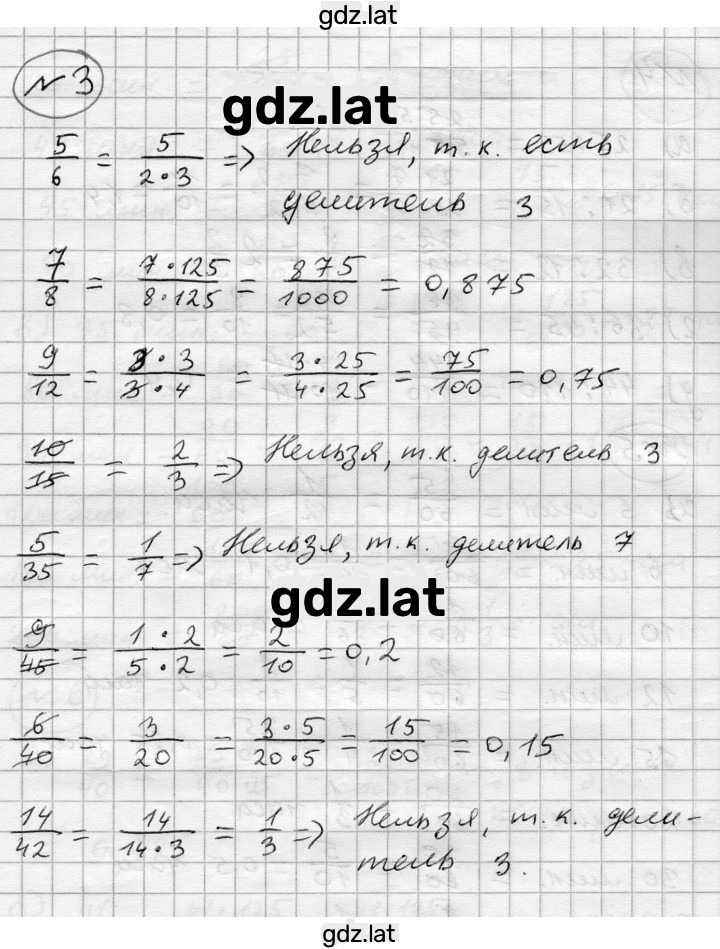 gdz.lat
№3
gdz.lat
5/6 = 5/(2·3) => Нельзя, т.к. есть
делитель 3
7/8 = (7·125)/(8·125) = 875/1000 = 0,875
9/12 = (3·3)/(3·4) = (3·25)/(4·25) = 75/100 = 0,75
10/15 = 2/3 => Нельзя, т.к. делитель 3
5/35 = 1/7 => Нельзя, т.к. делитель 7
gdz.lat
9/45 = (1·2)/(5·2) = 2/10 = 0,2
6/40 = 3/20 = (3·5)/(20·5) = 15/100 = 0,15
14/42 = 14/(14·3) = 1/3 => Нельзя, т.к. дели-
тель 3.
gdz.lat